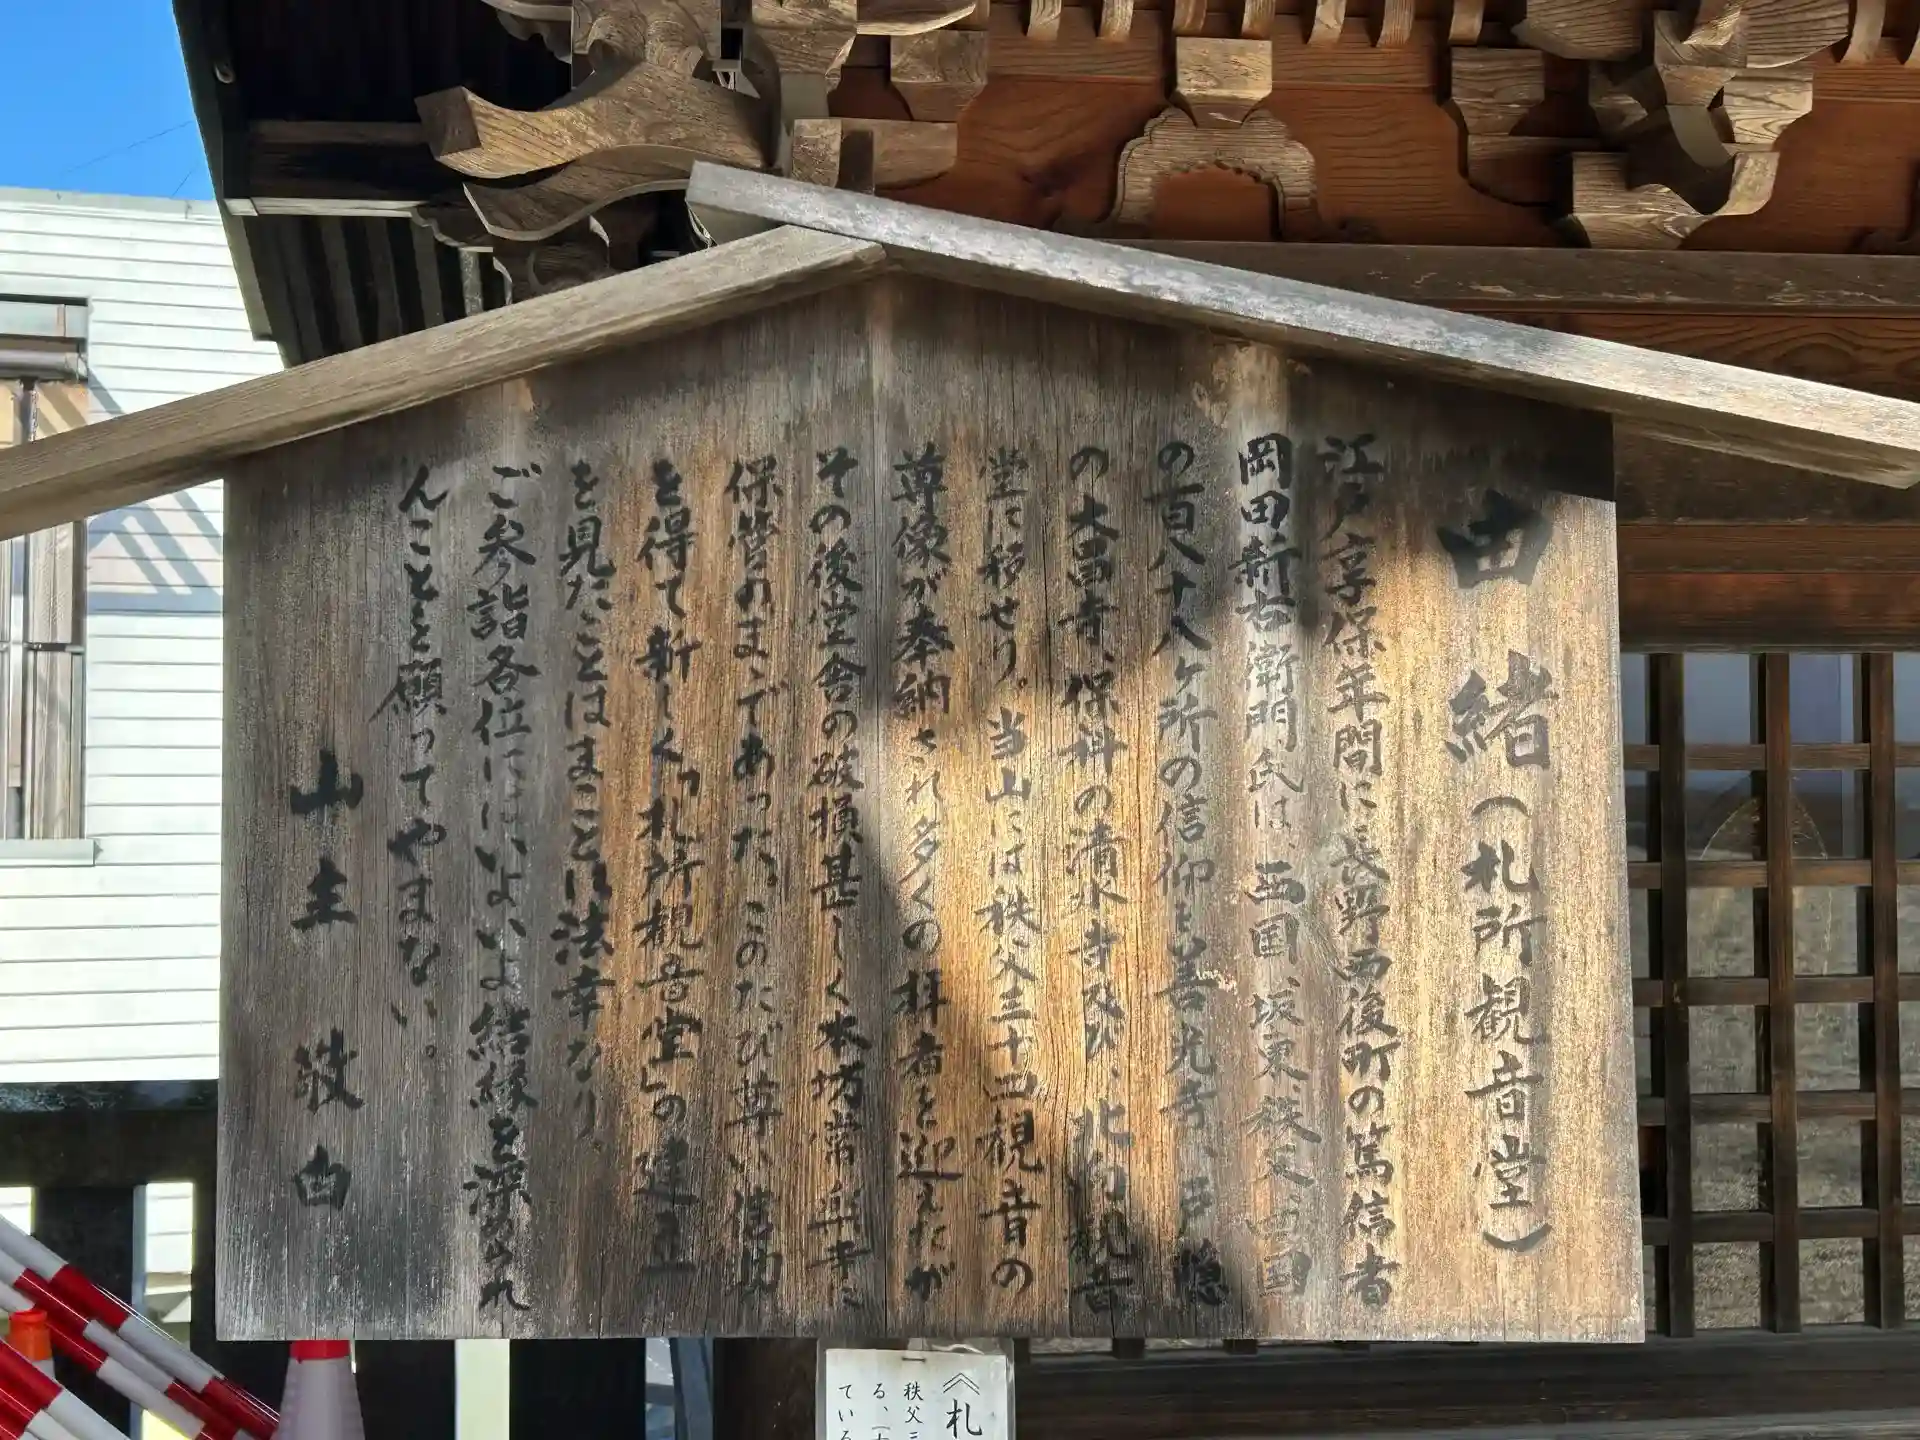 由緒（札所観音堂）
江戸享保年間に長野西後町の篤信者
岡田新右衛門氏は、西国、坂東、秩父、四国
の百八十八ヶ所の信仰を善光寺、戸隠
の大昌寺、保科の清水寺及び、北向観音
堂に移せり。当山には秩父三十四観音の
尊像が奉納され多くの拝者を迎えたが
その後堂舎の破損甚しく本坊常楽寺に
保管のまゝであった。このたび尊い信助
を得て新しく「札所観音堂」の建立
を見たことはまことに法幸なり。
ご参詣各位にはいよいよ結縁を深められ
んことを願ってやまない。
山主 敬白
《札
秩父三
る、
ている